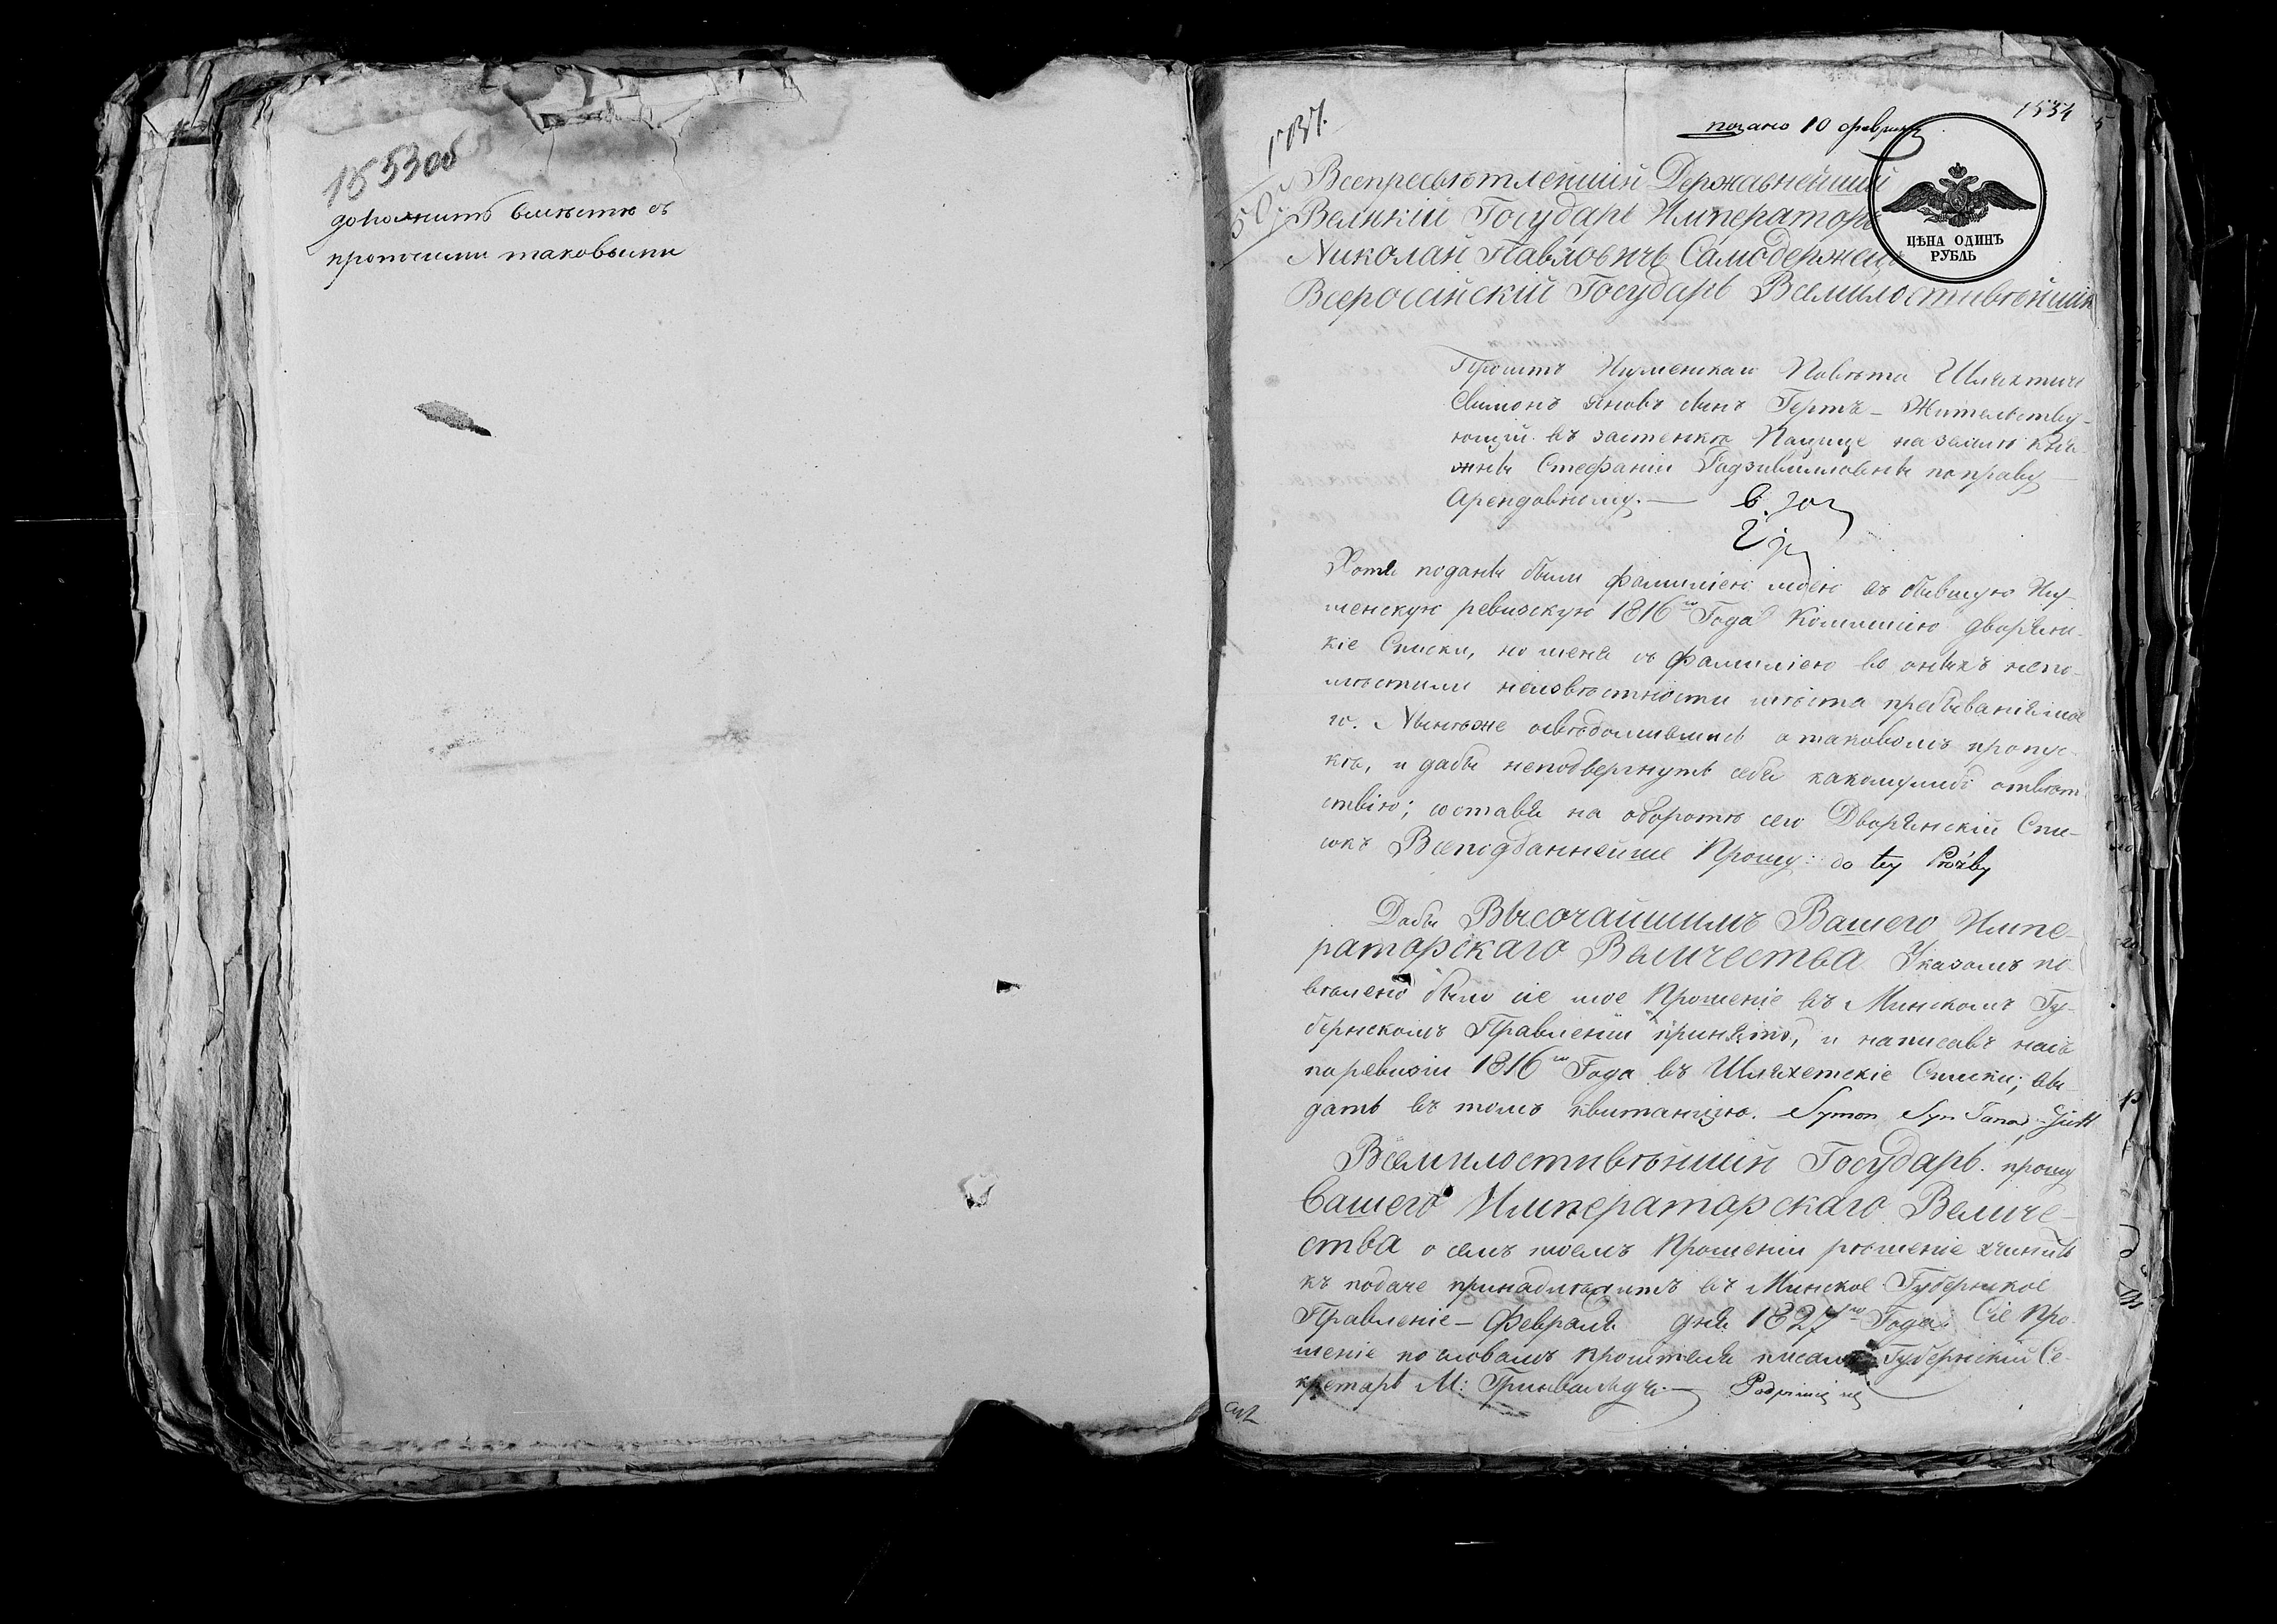 1853об
доложить вместе съ
протчими таковыми
1534
подано 10 февраля
ЦѢНА ОДИНЪ
РУБЛЬ
Всепресветлейшій Державнейшій
Великій Государь Императоръ
Николай Павловичь Самодержецъ
Всероссійскій Государь Всемилостивѣйшій
Проситъ Игуменскаго Повѣта Шляхтичь
Симонъ Яновъ сынъ Гертъ - Жительству-
ющій въ застенкѣ Пацуце на землѣ Кня-
жны Стефаніи Радзивилловны по праву
Арендовному. —
Хотя поданы были фамиліею моею въ бывшую Игу-
менскую ревизскую 1816го Года Коммисію дворянс-
кіе Списки, но меня съ фамиліею во оныхъ непо-
мѣстили неизвѣстности мѣста пребыванія мое
го. Нынѣже освѣдомившись о таковомъ пропус-
кѣ, и дабы неподвергнуть себя какомулибо отвѣт-
ствію; составя на оборотѣ сего Дворянскій Спи-
сокъ Всеподданнейше Прошу: do tey Prożby
Дабы Высочайшимъ Вашего Импе-
раторскаго Величества Указомъ по-
велено было сіе мое Прошеніе въ Минскомъ Гу-
бернскомъ Правленіи принять, и написавъ насъ
по ревизіи 1816го Года въ Шляхетскіе Списки; вы-
дать въ томъ квитанцію. Symon Syn Jana
Всемилостивѣйшій Государь. прошу
Вашего Императорскаго Величе-
ства о семъ моемъ Прошеніи рѣшеніе учинить
къ подаче принадлежитъ въ Минское Губернское
Правленіе - Февраля дня 1827го Года. Сіе Про-
шеніе по словамъ просителя писалъ Губернскій Се-
кретарь М: Гринвальдъ. —